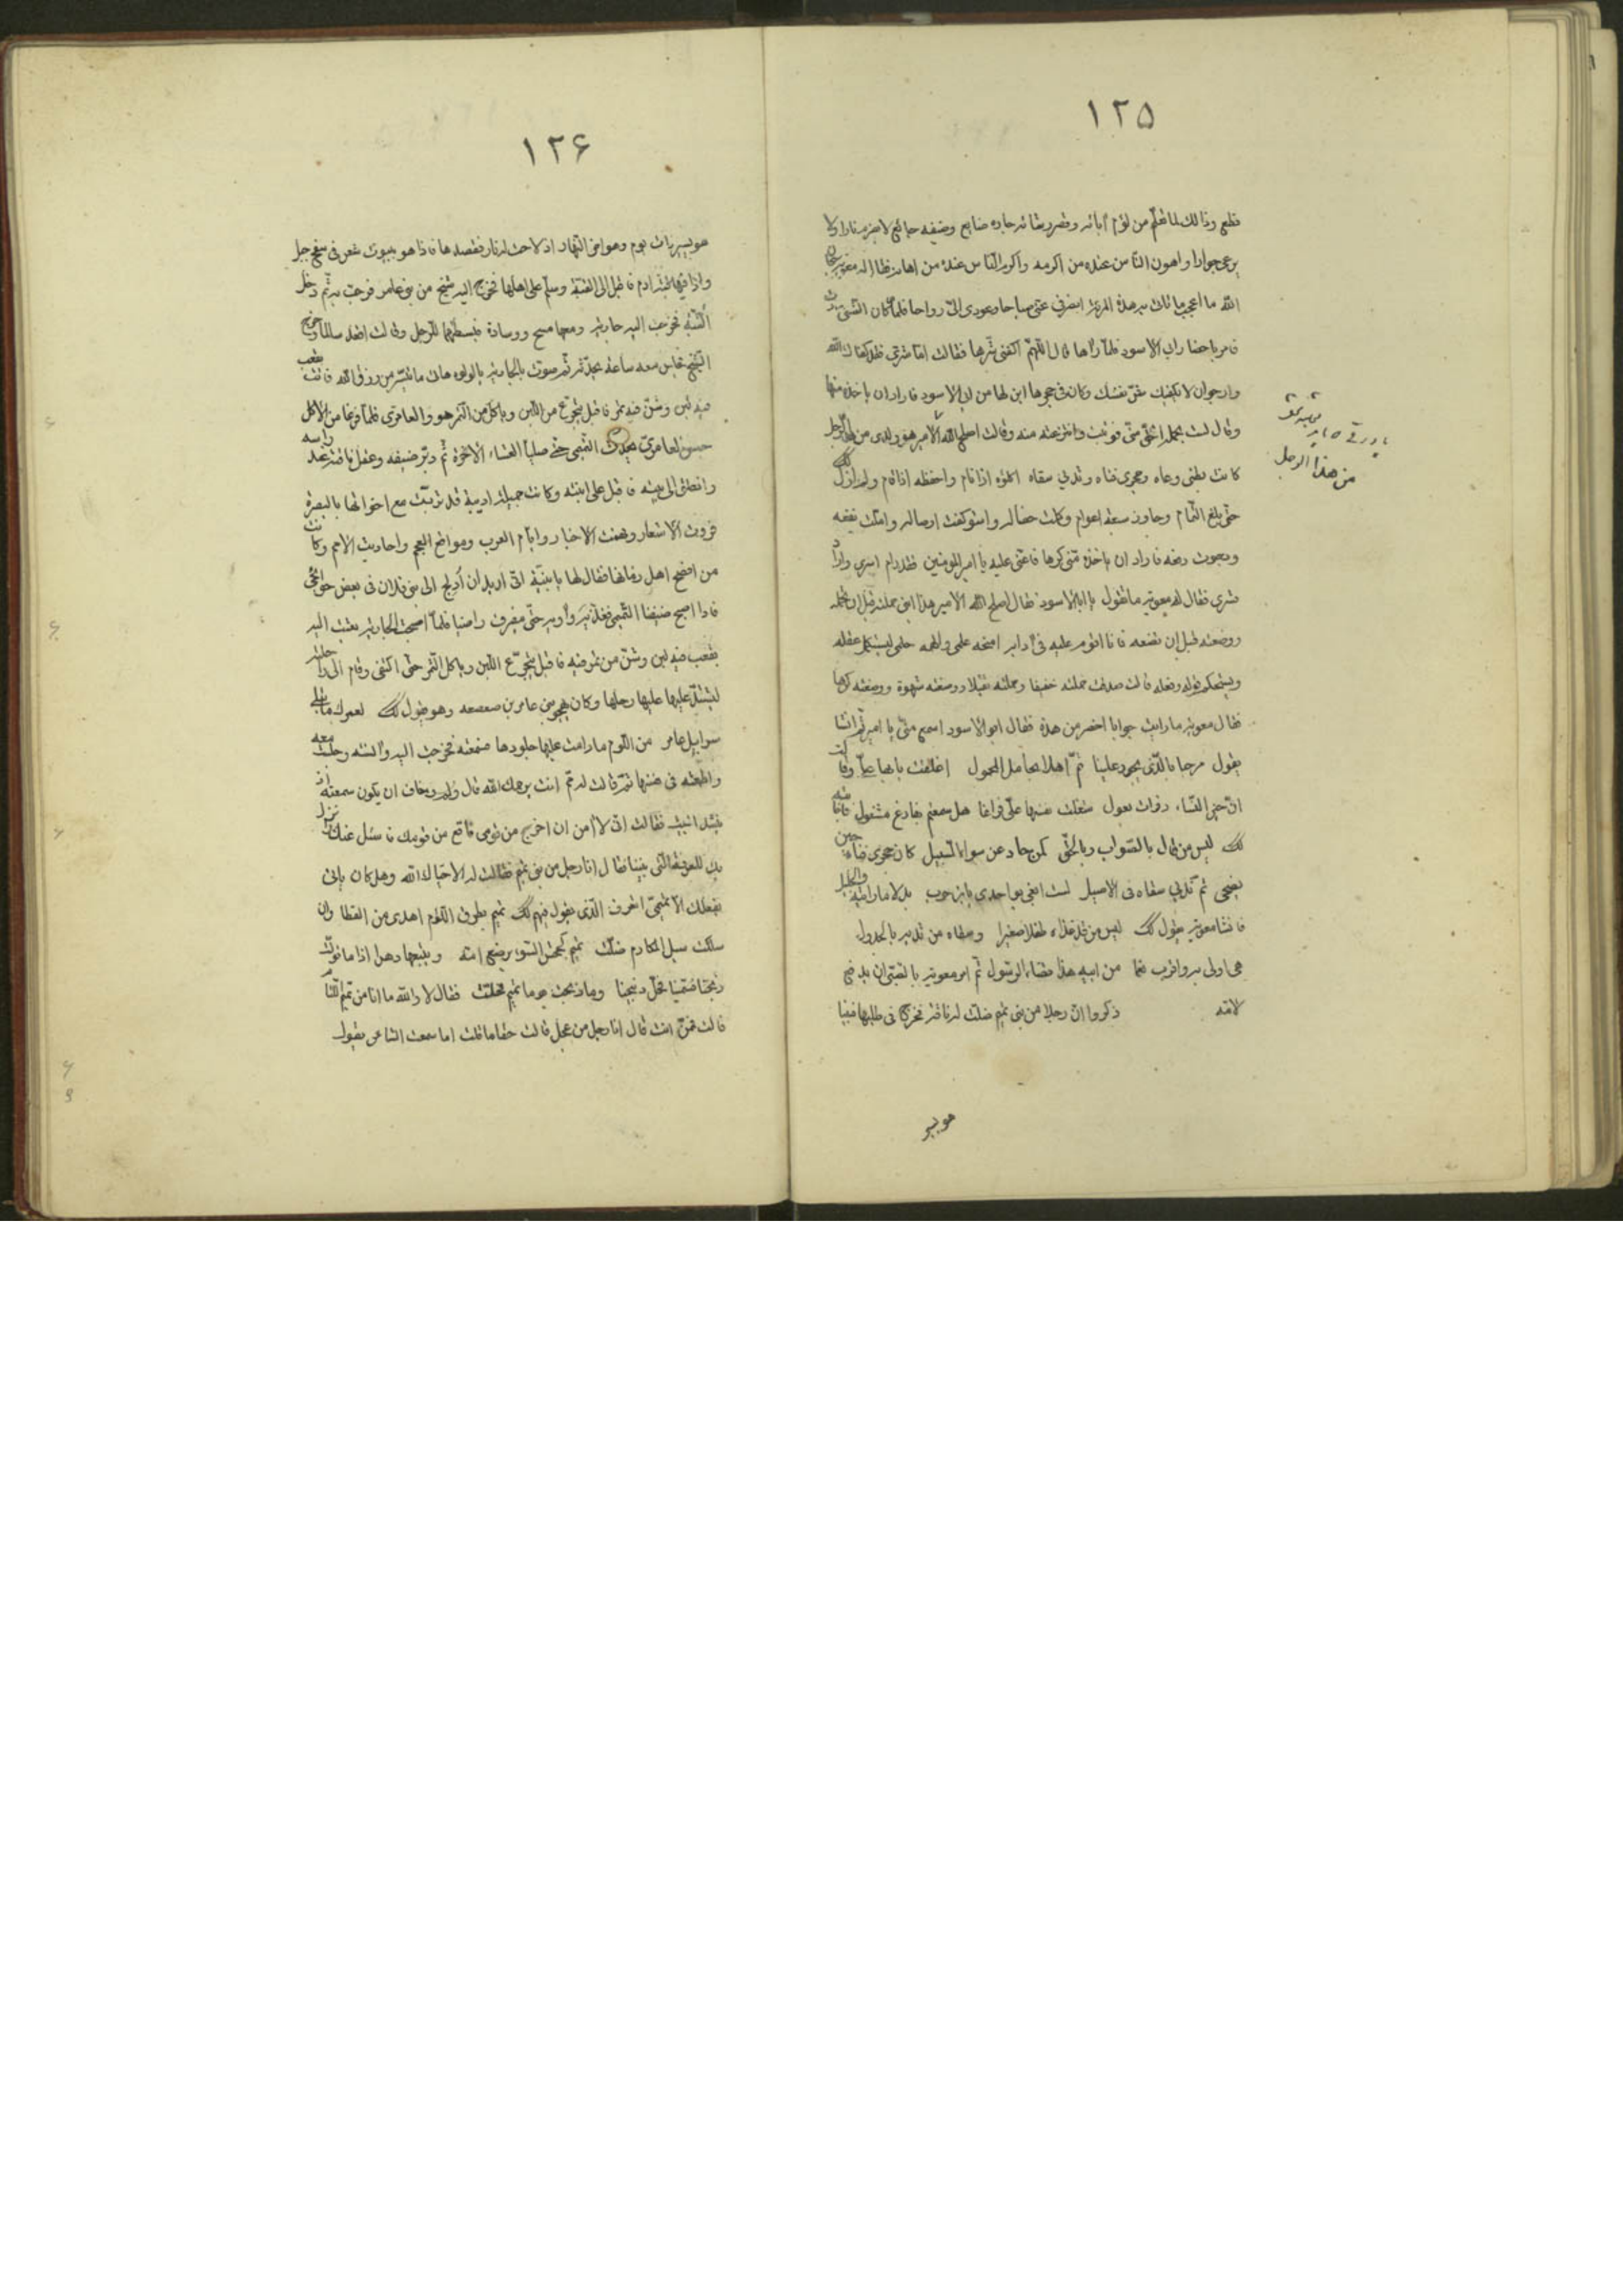 ١٢۵
قطع وذالك لما تعلم من لؤم آبائه وقصر رشائه جاره ضايع وضيفه جائع لا يضرم نارا ولا
يرعى جوارا واهون الناس عنده من اكرمه واكرم الناس عنده من اهانه فقال له معوية سبحان
الله ما اعجب ما تأت به هذه المرءة انصرفى عنى صباحا وعودى الىّ رواحا فلما كان العشى جاءت
فامر باحضار ابى الاسود فلما رآها قال اللهم اكفنى شرها فقالت اما شرى فقد كفاك الله
وارجو ان لا يكفيك شر نفسك وكان فى حجرها ابن لها من ابى الاسود فاراد ان ياخذه منها
وقال لست بحمله احق منى فوثبت وانتزعته منه وقالت اصلح الله الامير هو ولدى من هذا الرجل
من هذا الرجل
كانت بطنى وعاه وحجرى فناه وثدى سقاه اكلؤه اذا نام واحفظه اذا قام ولم ازل كك
حتى بلغ التمام وجاوز سبعة اعوام وكملت خصاله واستوكفت اوصاله وامّلت نفعه
ورجوت دفعه فاراد ان ياخذه منى كرها فاعنى عليه يا امير المومنين فقد رام اسرى واراد
قسرى فقال له معوية ما تقول يا ابا الاسود فقال اصلح الله الامير هذا ابنى حملته قبل ان تحمله
ووضعته قبل ان تضعه فانا اقوم عليه فى ادابه امنحه علمى والهمه حلمى ليستكمل عقله
ويستحكم قوله وفعله قالت صدقت حملته خفيفا وحملته ثقيلا ووضعته شهوة ووضعته كرها
فقال معوية ما رايت جوابا احضر من هذه فقال ابو الاسود اسمع منى يا امير ثم انشا
يقول مرحبا بالذى يجور علينا ثم اهلا بحامل المحمول اغلقت بابها علىّ وقالت
انّ خير النساء ذوات بعول شغلت نفسها علىّ فراغا هل سمعتم بفارغ مشغول فاجابته
كك ليس من قال بالصواب وبالحق كمن حاد عن سواء السبيل كان حجرى فناءه حين
يضحى ثم ثديى سقاه فى الاصيل لست ابغى بواحدى يابن حرب بدلا ما رايته والخليل
فانشا معوية يقول كك ليس من قد غذاه طفلا صغيرا وسقاه من ثديه بالجدول
هى اولى به واقرب رحما من ابيه هذا قضاء الرسول ثم امر معوية بالصبى ان يدفع
لامّه ذكروا انّ رجلا من بنى تميم ضلّت له ناقة فخرج فى طلبها فبينا
هو يسير
١٢۶
هو يسير ذات يوم وهو اخر النهار اذ لاحت له نار فقصدها فاذا هو ببيوت شعر فى سفح جبل
واذا فيها قبة ادم فاقبل الى القبة وسلم على اهلها فخرج اليه شيخ من بنى عامر فرحب به ثم دخل
القبة فخرجت اليه جارية ومعها مسح ووسادة فبسطتهما للرجل وقالت اقعد سالما وخرج
الشيخ فجلس معه ساعة يحدّثه ثم صوّت بالجارية هات ما تيسّر من رزق الله فاتت بقعب
فيه لبن وشنّ فيه تمر فاقبل يتجرّع من اللبن وياكل من التمر هو والعامرى فلما فرغا من الاكل
جلس العامرى يحدث التميمى حتى صليا العشاء الاخرة ثم دثر ضيفه وعقل ناقته عند راسه
وانطلق الى بيته فاقبل على ابنته وكانت جميلة اديبة قد تربّت مع اخوالها بالبصرة
فروت الاشعار وفهمت الاخبار وايام العرب ومواضع العجم واحاديث الامم وكانت
من افصح اهل زمانها فقال لها يا بنيّة انى اريد ان ادلج الى بنى فلان فى بعض حوائجى
فاذا اصبح ضيفنا التميمى فغدّيه وآويه حتى ينصرف راضيا فلما اصبحت الجارية بعثت اليه
بقعب فيه لبن وشنّ من تمر فيه فاقبل يتجرّع اللبن وياكل التمر حتى اكتفى وقام الى راحلته
ليشدّ عليها رحلها وكان يهجو بنى عامر بن صعصعه وهو يقول كك لعمرك ما تبلى
سرابيل عامر من اللوم ما دامت عليها جلودها فسمعته فخرجت اليه وآنسته وجلست معه
واطمعته فى نفسها ثم قالت له ممّ انت يرحمك الله قال ولم وخاف ان يكون سمعته اذ
ينشد البيت فقالت انى لا آمن ان اخرج من قومى فاقع من قومك فاسئل عنك
بك للمعرفة التى بيننا فقال انا رجل من بنى تميم فقالت له الا حيّاك الله وهل كان ياتى
بفعلك الا تميمى اتعرف الذى يقول فيهم كك تميم بطرق اللؤم اهدى من القطا وان
سلكت سبل المكارم ضلّت تميم كجحش السوء يرضع امّه ويتبعها دهرا اذا ما تولّت
ذبحنا فسمّينا فحلّ ذبيحنا وما ذبحت يوما تميم فحلّت فقال لا والله ما انا من تميم
قالت فممّن انت قال انا رجل من عجل قالت حقا ما قلت اما سمعت الشاعر يقول